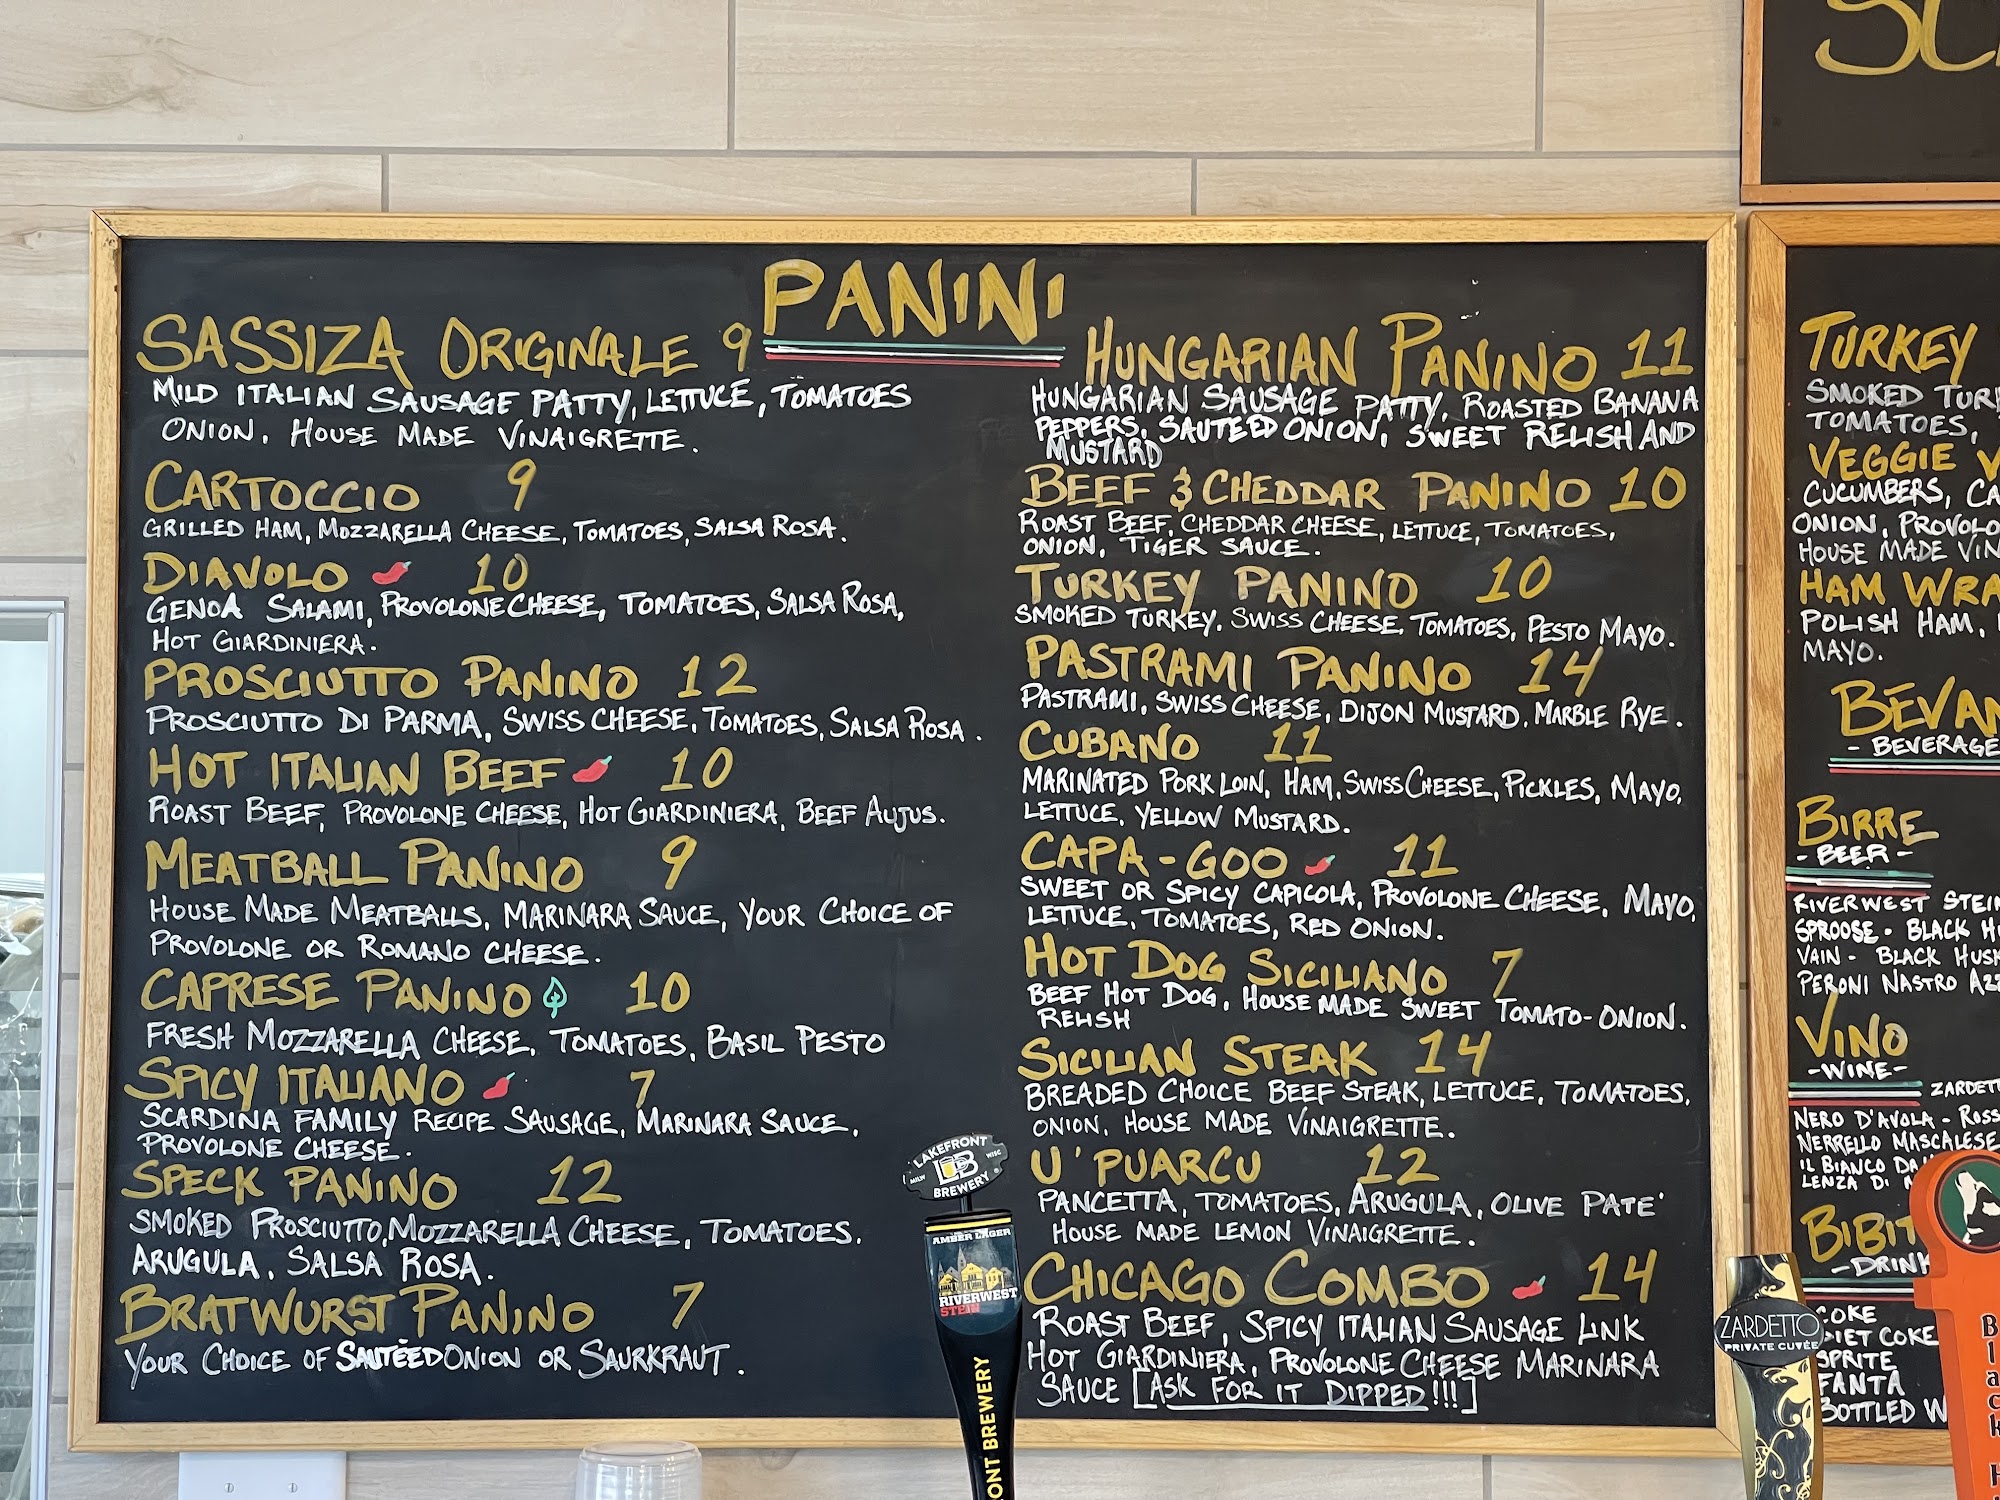 PANINI
SASSIZA ORIGINALE 9
MILD ITALIAN SAUSAGE PATTY, LETTUCE, TOMATOES
ONION, HOUSE MADE VINAIGRETTE.
CARTOCCIO 9
GRILLED HAM, MOZZARELLA CHEESE, TOMATOES, SALSA ROSA.
DIAVOLO 10
GENOA SALAMI, PROVOLONE CHEESE, TOMATOES, SALSA ROSA,
HOT GIARDINIERA.
PROSCIUTTO PANINO 12
PROSCIUTTO DI PARMA, SWISS CHEESE, TOMATOES, SALSA ROSA.
HOT ITALIAN BEEF 10
ROAST BEEF, PROVOLONE CHEESE, HOT GIARDINIERA, BEEF AUJUS.
MEATBALL PANINO 9
HOUSE MADE MEATBALLS, MARINARA SAUCE, YOUR CHOICE OF
PROVOLONE OR ROMANO CHEESE.
CAPRESE PANINO 10
FRESH MOZZARELLA CHEESE, TOMATOES, BASIL PESTO
SPICY ITALIANO 7
SCARDINA FAMILY RECIPE SAUSAGE, MARINARA SAUCE,
PROVOLONE CHEESE.
SPECK PANINO 12
SMOKED PROSCIUTTO, MOZZARELLA CHEESE, TOMATOES.
ARUGULA, SALSA ROSA.
BRATWURST PANINO 7
YOUR CHOICE OF SAUTÉED ONION OR SAURKRAUT.
HUNGARIAN PANINO 11
HUNGARIAN SAUSAGE PATTY, ROASTED BANANA
PEPPERS, SAUTEED ONION, SWEET RELISH AND
MUSTARD
BEEF & CHEDDAR PANINO 10
ROAST BEEF, CHEDDAR CHEESE, LETTUCE, TOMATOES,
ONION, TIGER SAUCE.
TURKEY PANINO 10
SMOKED TURKEY, SWISS CHEESE, TOMATOES, PESTO MAYO.
PASTRAMI PANINO 14
PASTRAMI, SWISS CHEESE, DIJON MUSTARD, MARBLE RYE.
CUBANO 11
MARINATED PORK LOIN, HAM, SWISS CHEESE, PICKLES, MAYO,
LETTUCE, YELLOW MUSTARD.
CAPA-GOO 11
SWEET OR SPICY CAPICOLA, PROVOLONE CHEESE, MAYO,
LETTUCE, TOMATOES, RED ONION.
HOT DOG SICILIANO 7
BEEF HOT DOG, HOUSE MADE SWEET TOMATO-ONION.
RELISH
SICILIAN STEAK 14
BREADED CHOICE BEEF STEAK, LETTUCE, TOMATOES,
ONION, HOUSE MADE VINAIGRETTE.
U'PUARCU 12
PANCETTA, TOMATOES, ARUGULA, OLIVE PATE'
HOUSE MADE LEMON VINAIGRETTE.
CHICAGO COMBO 14
ROAST BEEF, SPICY ITALIAN SAUSAGE LINK
HOT GIARDINIERA, PROVOLONE CHEESE MARINARA
SAUCE [ASK FOR IT DIPPED!!!]
TURKEY
SMOKED
TOMATOES,
VEGGIE
CUCUMBERS,
ONION,
HOUSE MADE
HAM
POLISH HAM,
MAYO.
- BEVERAGE
BIRRE
-BEER-
RIVERWEST STEIN
SPROOSE - BLACK
VAIN - BLACK HUSK
PERONI NASTRO
VINO
-WINE-
NERO D'AVOLA -
NERRELLO MASCALESE
IL BIANCO
LENZA DI
COKE
DIET COKE
SPRITE
FANTA
BOTTLED
LAKEFRONT
MILW WISC
BREWERY
AMBER LAGER
RIVERWEST
STEIN
ONT BREWERY
ZARDETTO
PRIVATE CUVÉE
Black